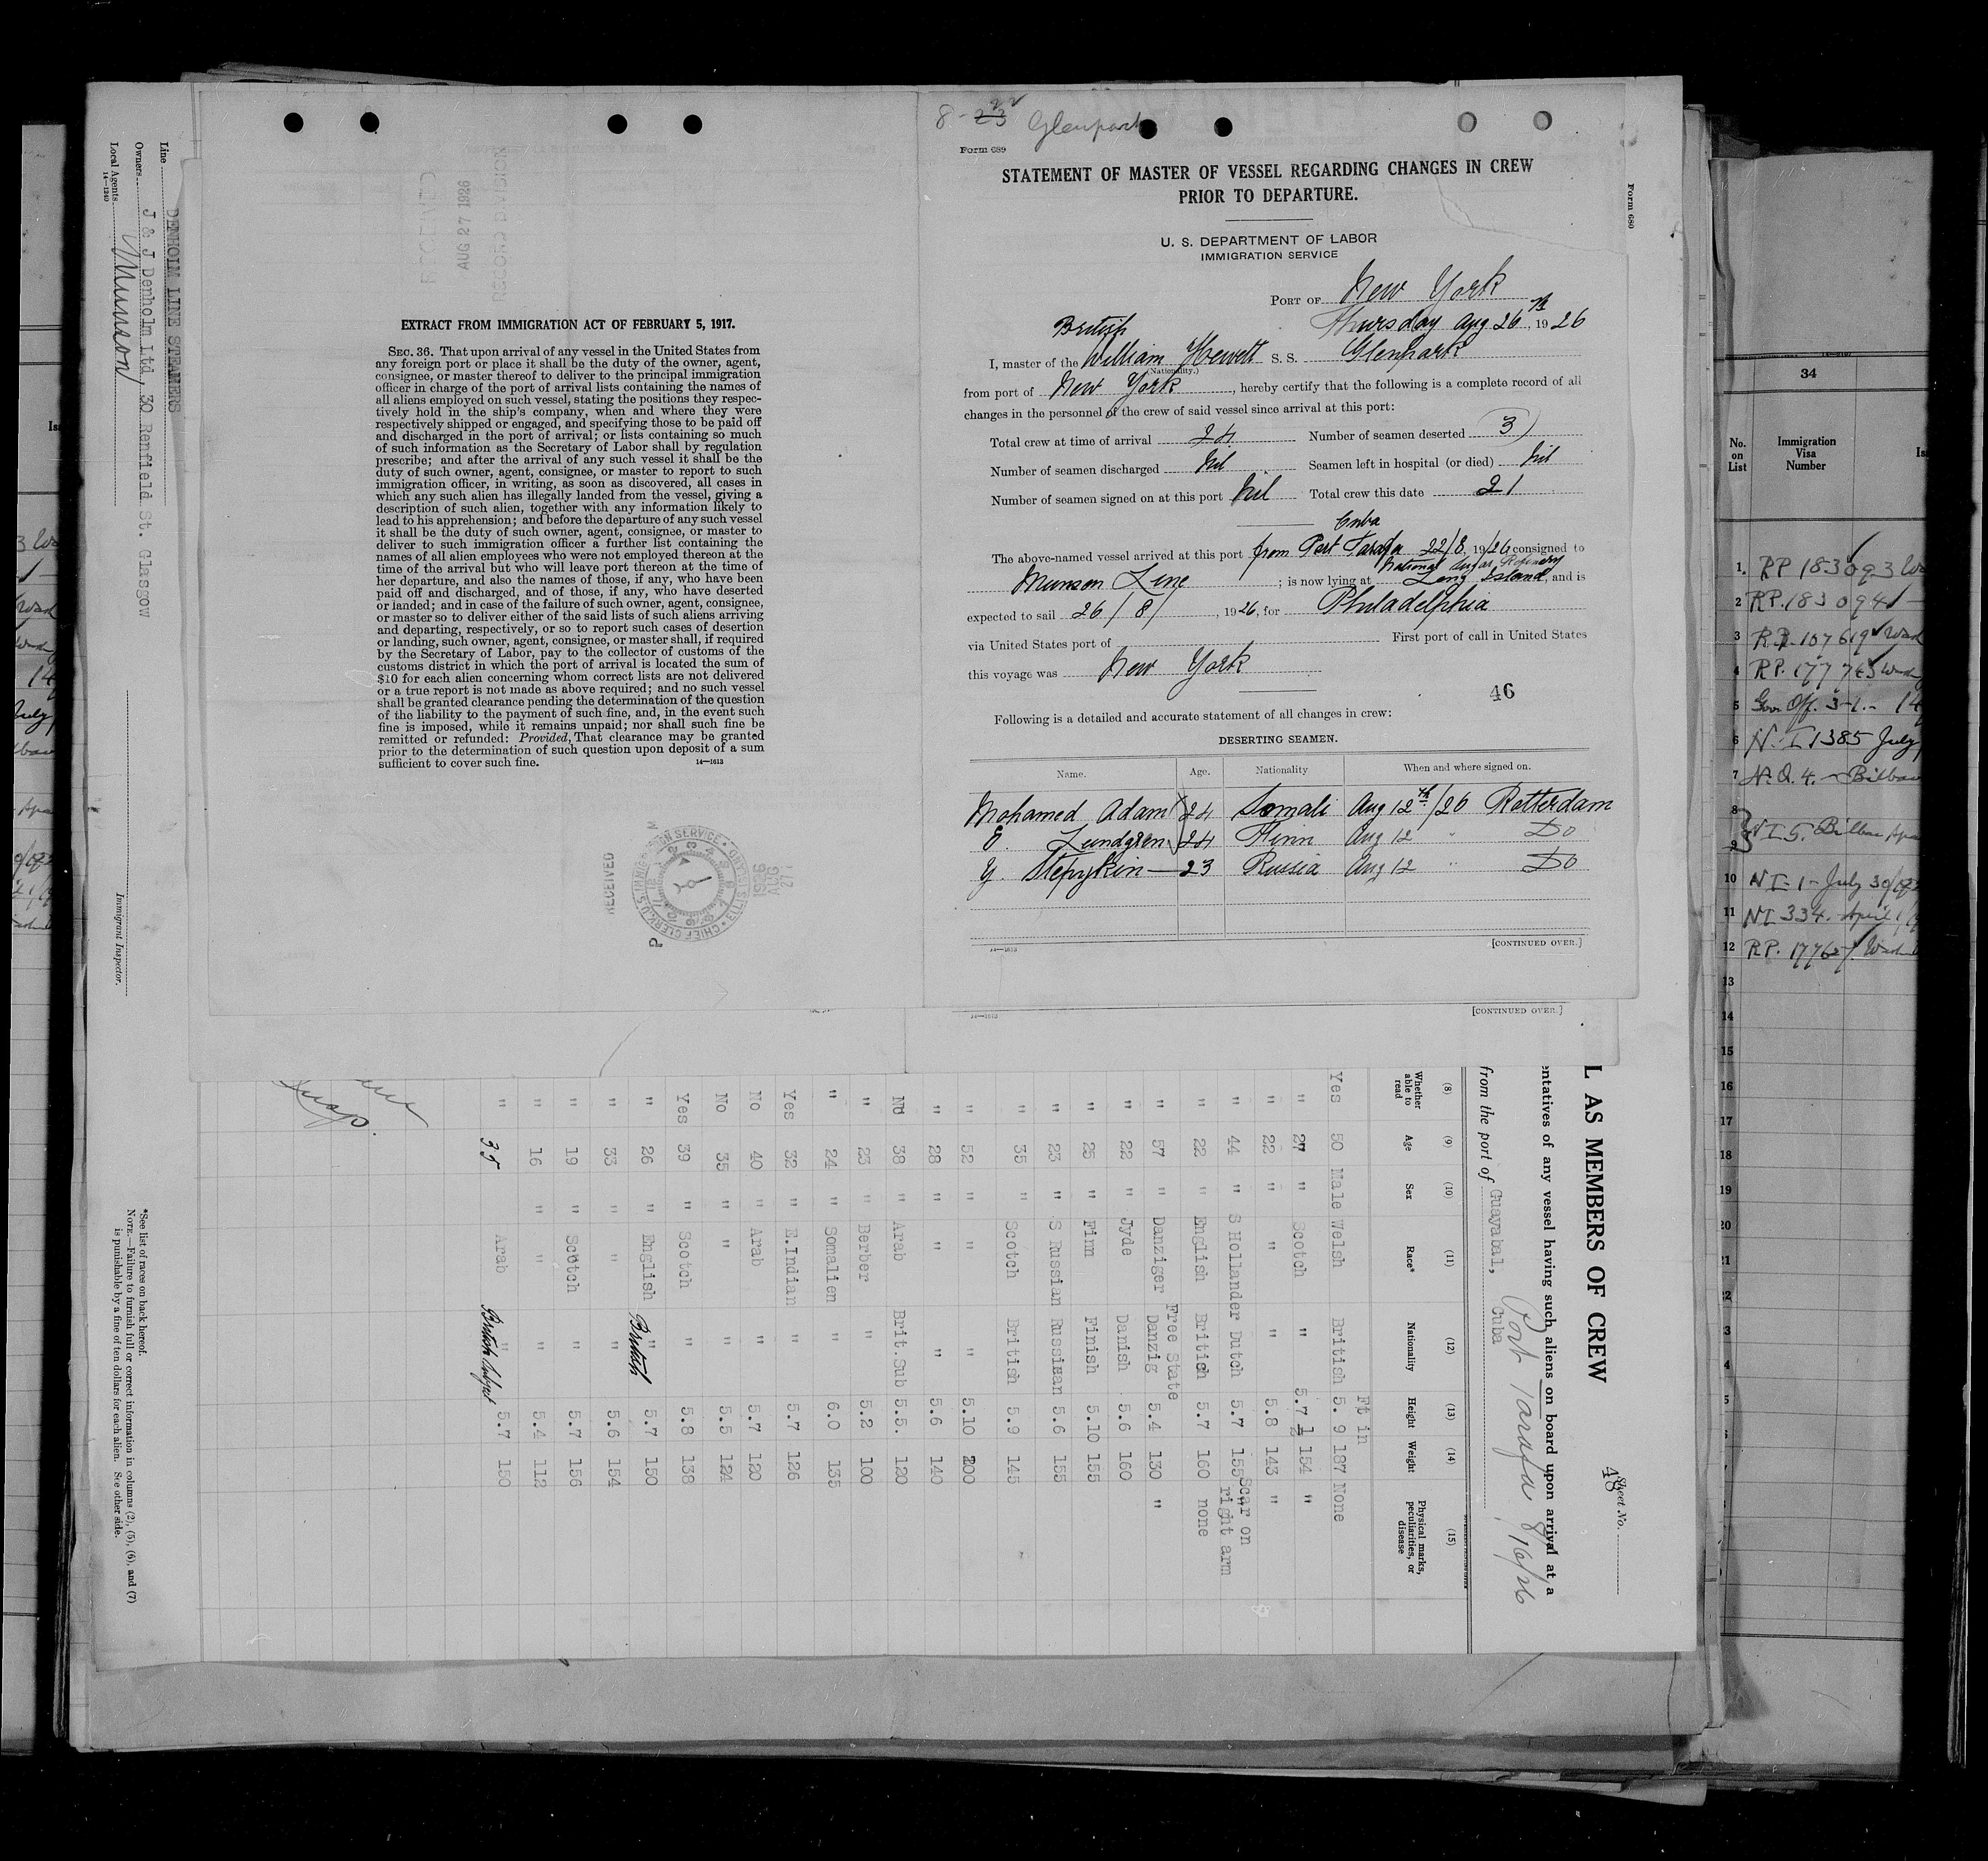 8-23 22 Glenpark
Form 689
STATEMENT OF MASTER OF VESSEL REGARDING CHANGES IN CREW
PRIOR TO DEPARTURE.
U. S. DEPARTMENT OF LABOR
IMMIGRATION SERVICE
PORT OF New York
Thursday Aug 26th, 1926
British
I, master of the William Hewett S. S. Glenpark
(Nationality.)
from port of New York, hereby certify that the following is a complete record of all
changes in the personnel of the crew of said vessel since arrival at this port:
Total crew at time of arrival 24 Number of seamen deserted 3
Number of seamen discharged Nil Seamen left in hospital (or died) Nil
Number of seamen signed on at this port Nil Total crew this date 21
Cuba
The above-named vessel arrived at this port from Port Tarafa 22/8, 19/26 consigned to
National Sugar Refinery
Munson Line; is now lying at Long Island, and is
expected to sail 26/8/, 1926, for Philadelphia
via United States port of First port of call in United States
this voyage was New York
46
Following is a detailed and accurate statement of all changes in crew:
DESERTING SEAMEN.
Name. Age. Nationality When and where signed on.
Mohamed Adam 24 Somali Aug 12th/26 Rotterdam
E. Lundgren 24 Finn Aug 12 " Do
Y. Stepykin 23 Russia Aug 12 " Do
14—1613 [CONTINUED OVER.]
Form 689
14—1613 [CONTINUED OVER.]
RECEIVED
AUG 27 1926
RECORD DIVISION
EXTRACT FROM IMMIGRATION ACT OF FEBRUARY 5, 1917.
SEC. 36. That upon arrival of any vessel in the United States from
any foreign port or place it shall be the duty of the owner, agent,
consignee, or master thereof to deliver to the principal immigration
officer in charge of the port of arrival lists containing the names of
all aliens employed on such vessel, stating the positions they respec-
tively hold in the ship's company, when and where they were
respectively shipped or engaged, and specifying those to be paid off
and discharged in the port of arrival; or lists containing so much
of such information as the Secretary of Labor shall by regulation
prescribe; and after the arrival of any such vessel it shall be the
duty of such owner, agent, consignee, or master to report to such
immigration officer, in writing, as soon as discovered, all cases in
which any such alien has illegally landed from the vessel, giving a
description of such alien, together with any information likely to
lead to his apprehension; and before the departure of any such vessel
it shall be the duty of such owner, agent, consignee, or master to
deliver to such immigration officer a further list containing the
names of all alien employees who were not employed thereon at the
time of the arrival but who will leave port thereon at the time of
her departure, and also the names of those, if any, who have been
paid off and discharged, and of those, if any, who have deserted
or landed; and in case of the failure of such owner, agent, consignee,
or master so to deliver either of the said lists of such aliens arriving
and departing, respectively, or so to report such cases of desertion
or landing, such owner, agent, consignee, or master shall, if required
by the Secretary of Labor, pay to the collector of customs of the
customs district in which the port of arrival is located the sum of
$10 for each alien concerning whom correct lists are not delivered
or a true report is not made as above required; and no such vessel
shall be granted clearance pending the determination of the question
of the liability to the payment of such fine, and, in the event such
fine is imposed, while it remains unpaid; nor shall such fine be
remitted or refunded: Provided, That clearance may be granted
prior to the determination of such question upon deposit of a sum
sufficient to cover such fine.
14—1613
RECEIVED
CHIEF CLERK U.S. IMMIGRATION SERVICE
1926
AUG
27
P
Line DENHOLM LINE STEAMERS
Owners J & J Denholm Ltd, 30 Renfield St. Glasgow
Local Agents Munson
14—1240
Immigrant Inspector.
L AS MEMBERS OF CREW
Sheet No.
48
entatives of any vessel having such aliens on board upon arrival at a
from the port of Guayabal, Cuba Port Tarafa 8/16/26
(8) (9) (10) (11) (12) (13) (14) (15)
Whether able to read Age Sex Race* Nationality Height Weight Physical marks, peculiarities, or disease
Ft in
Yes 50 Male Welsh British 5. 9 187 None
" 27 " Scotch " 5.7 1/2 154 "
" 22 " " " 5.8 143 "
" 44 " S Hollander Dutch 5.7 155 Scar on right arm
" 22 " English British 5.7 160 none
" 57 " Danziger Free State Danzig 5.4 130 "
" 22 " Jyde Danish 5.6 160
" 25 " Finn Finish 5.10 155
" 23 " S Russian Russian 5.6 155
" 35 " Scotch British 5.9 145
" 52 " " " 5.10 200
" 28 " " " 5.6 140
No 38 " Arab Brit.Sub 5.5. 120
" 23 " Berber " 5.2 100
" 24 " Somalien " 6.0 135
Yes 32 " E.Indian " 5.7 126
No 40 " Arab " 5.7 120
No 35 " " " 5.5 124
Yes 39 " Scotch " 5.8 138
" 26 " English " British 5.7 150
" 33 " " " 5.6 154
" 19 " Scotch " 5.7 156
" 16 " " " 5.4 112
" 35 Arab " British Subject 5.7 150
*See list of races on back hereof.
NOTE.—Failure to furnish full or correct information in columns (2), (5), (6), and (7)
is punishable by a fine of ten dollars for each alien. See other side.
34
No. on List Immigration Visa Number
1. RP 183093
2 RP. 183094
3 R.P. 107619
4 RP. 177763
5 Gov. Off. 3-1.- 14
6 N.I. 1385 July
7 N.Q. 4. - Bilbao
8
9 NI 5. Bilbao
10 NI-1- July 30/
11 NI 334. April 1/
12 RP. 17762
13
14
15
16
17
18
19
20
21
22